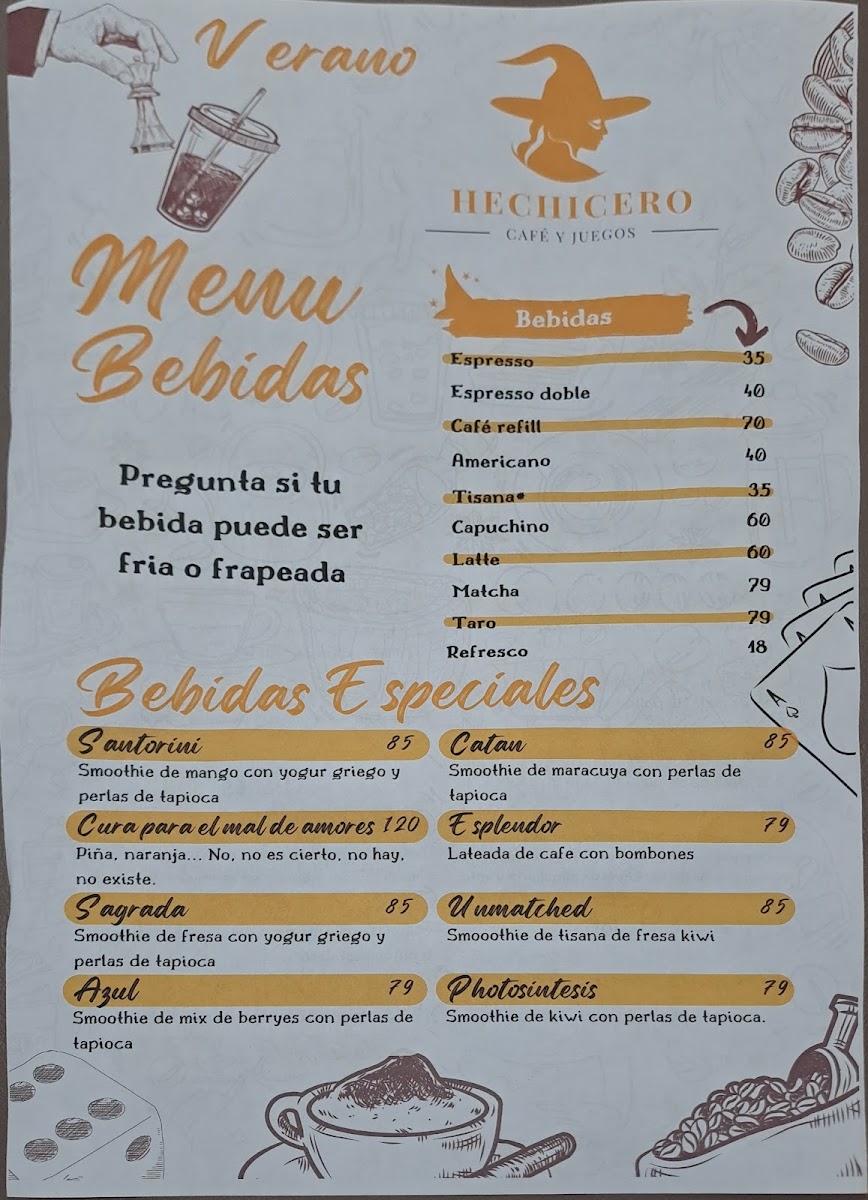 Verano
HECHICERO
CAFÉ Y JUEGOS
Menu
Bebidas
Pregunta si tu
bebida puede ser
fria o frapeada
Bebidas
Espresso 35
Espresso doble 40
Café refill 70
Americano 40
Tisana* 35
Capuchino 60
Latte 60
Matcha 79
Taro 79
Refresco 18
Bebidas Especiales
Santorini 85
Smoothie de mango con yogur griego y
perlas de tapioca
Cura para el mal de amores 120
Piña, naranja... No, no es cierto, no hay,
no existe.
Sagrada 85
Smoothie de fresa con yogur griego y
perlas de tapioca
Azul 79
Smoothie de mix de berryes con perlas de
tapioca
Catan 85
Smoothie de maracuya con perlas de
tapioca
Esplendor 79
Lateada de cafe con bombones
Unmatched 85
Smooothie de tisana de fresa kiwi
Photosintesis 79
Smoothie de kiwi con perlas de tapioca.
A